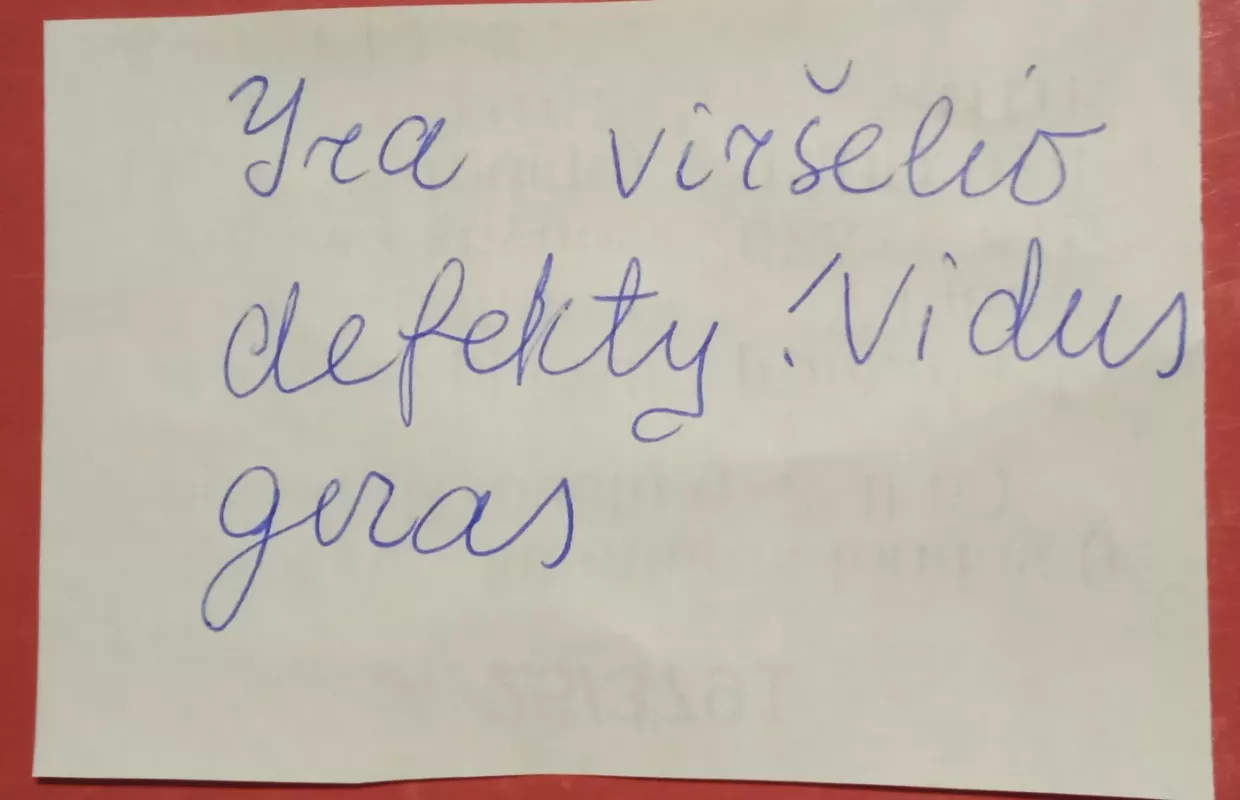 Yra viršelio
defektų. Vidus
geras